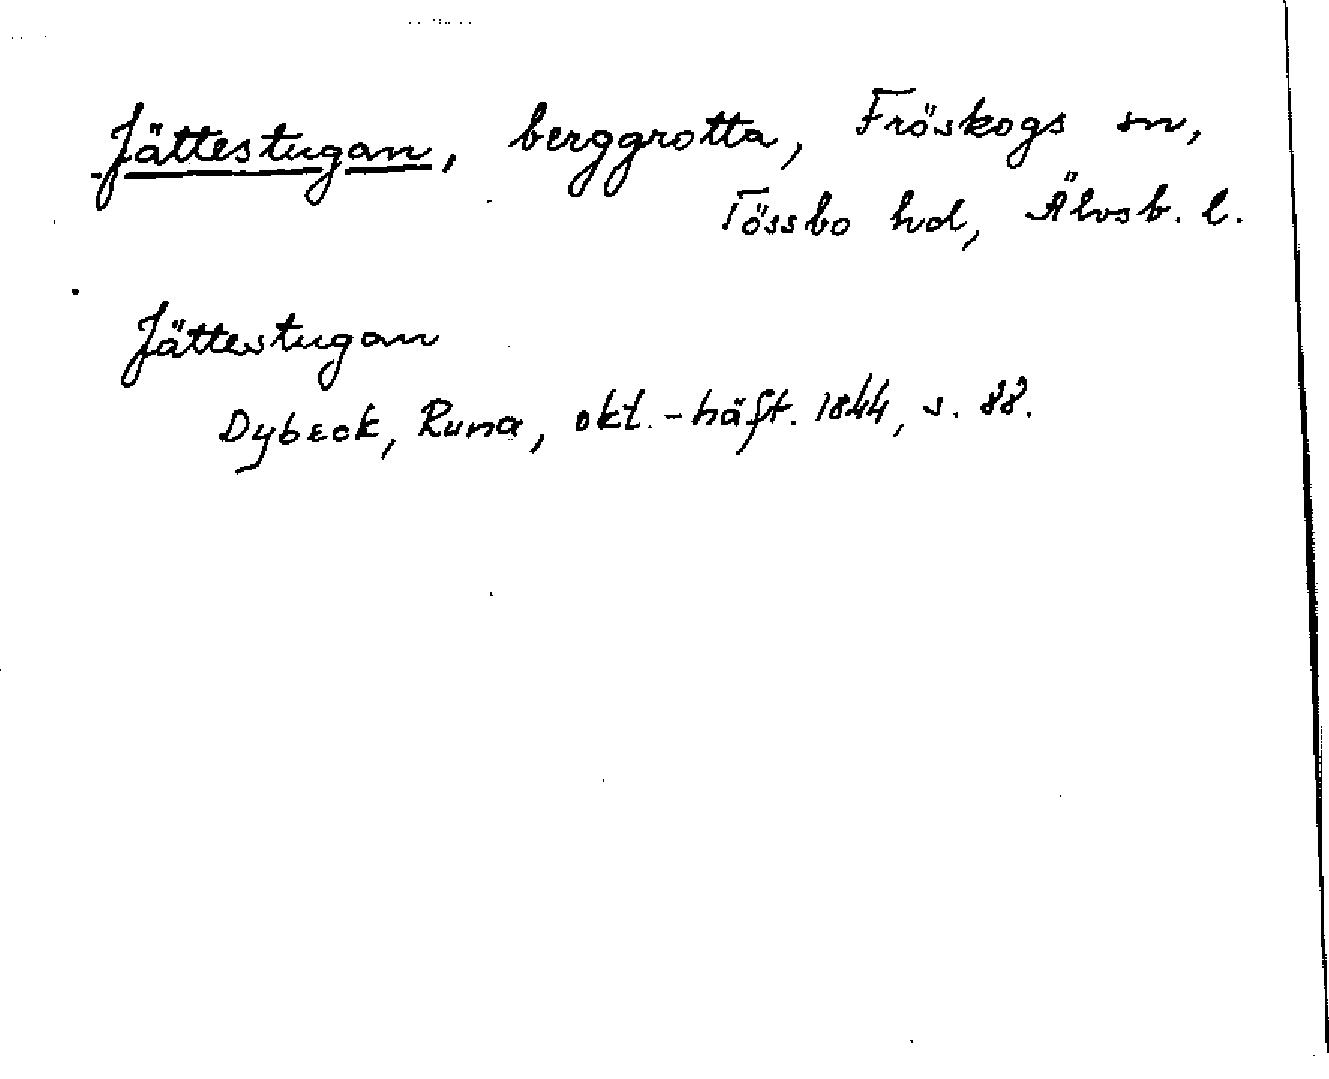 Jättestugan, berggrotta, Fröskogs sn,
Tössbo hd, Älvsb. l.
Jättestugan
Dybeck, Runa, okt.-häft. 1844, s. 88.